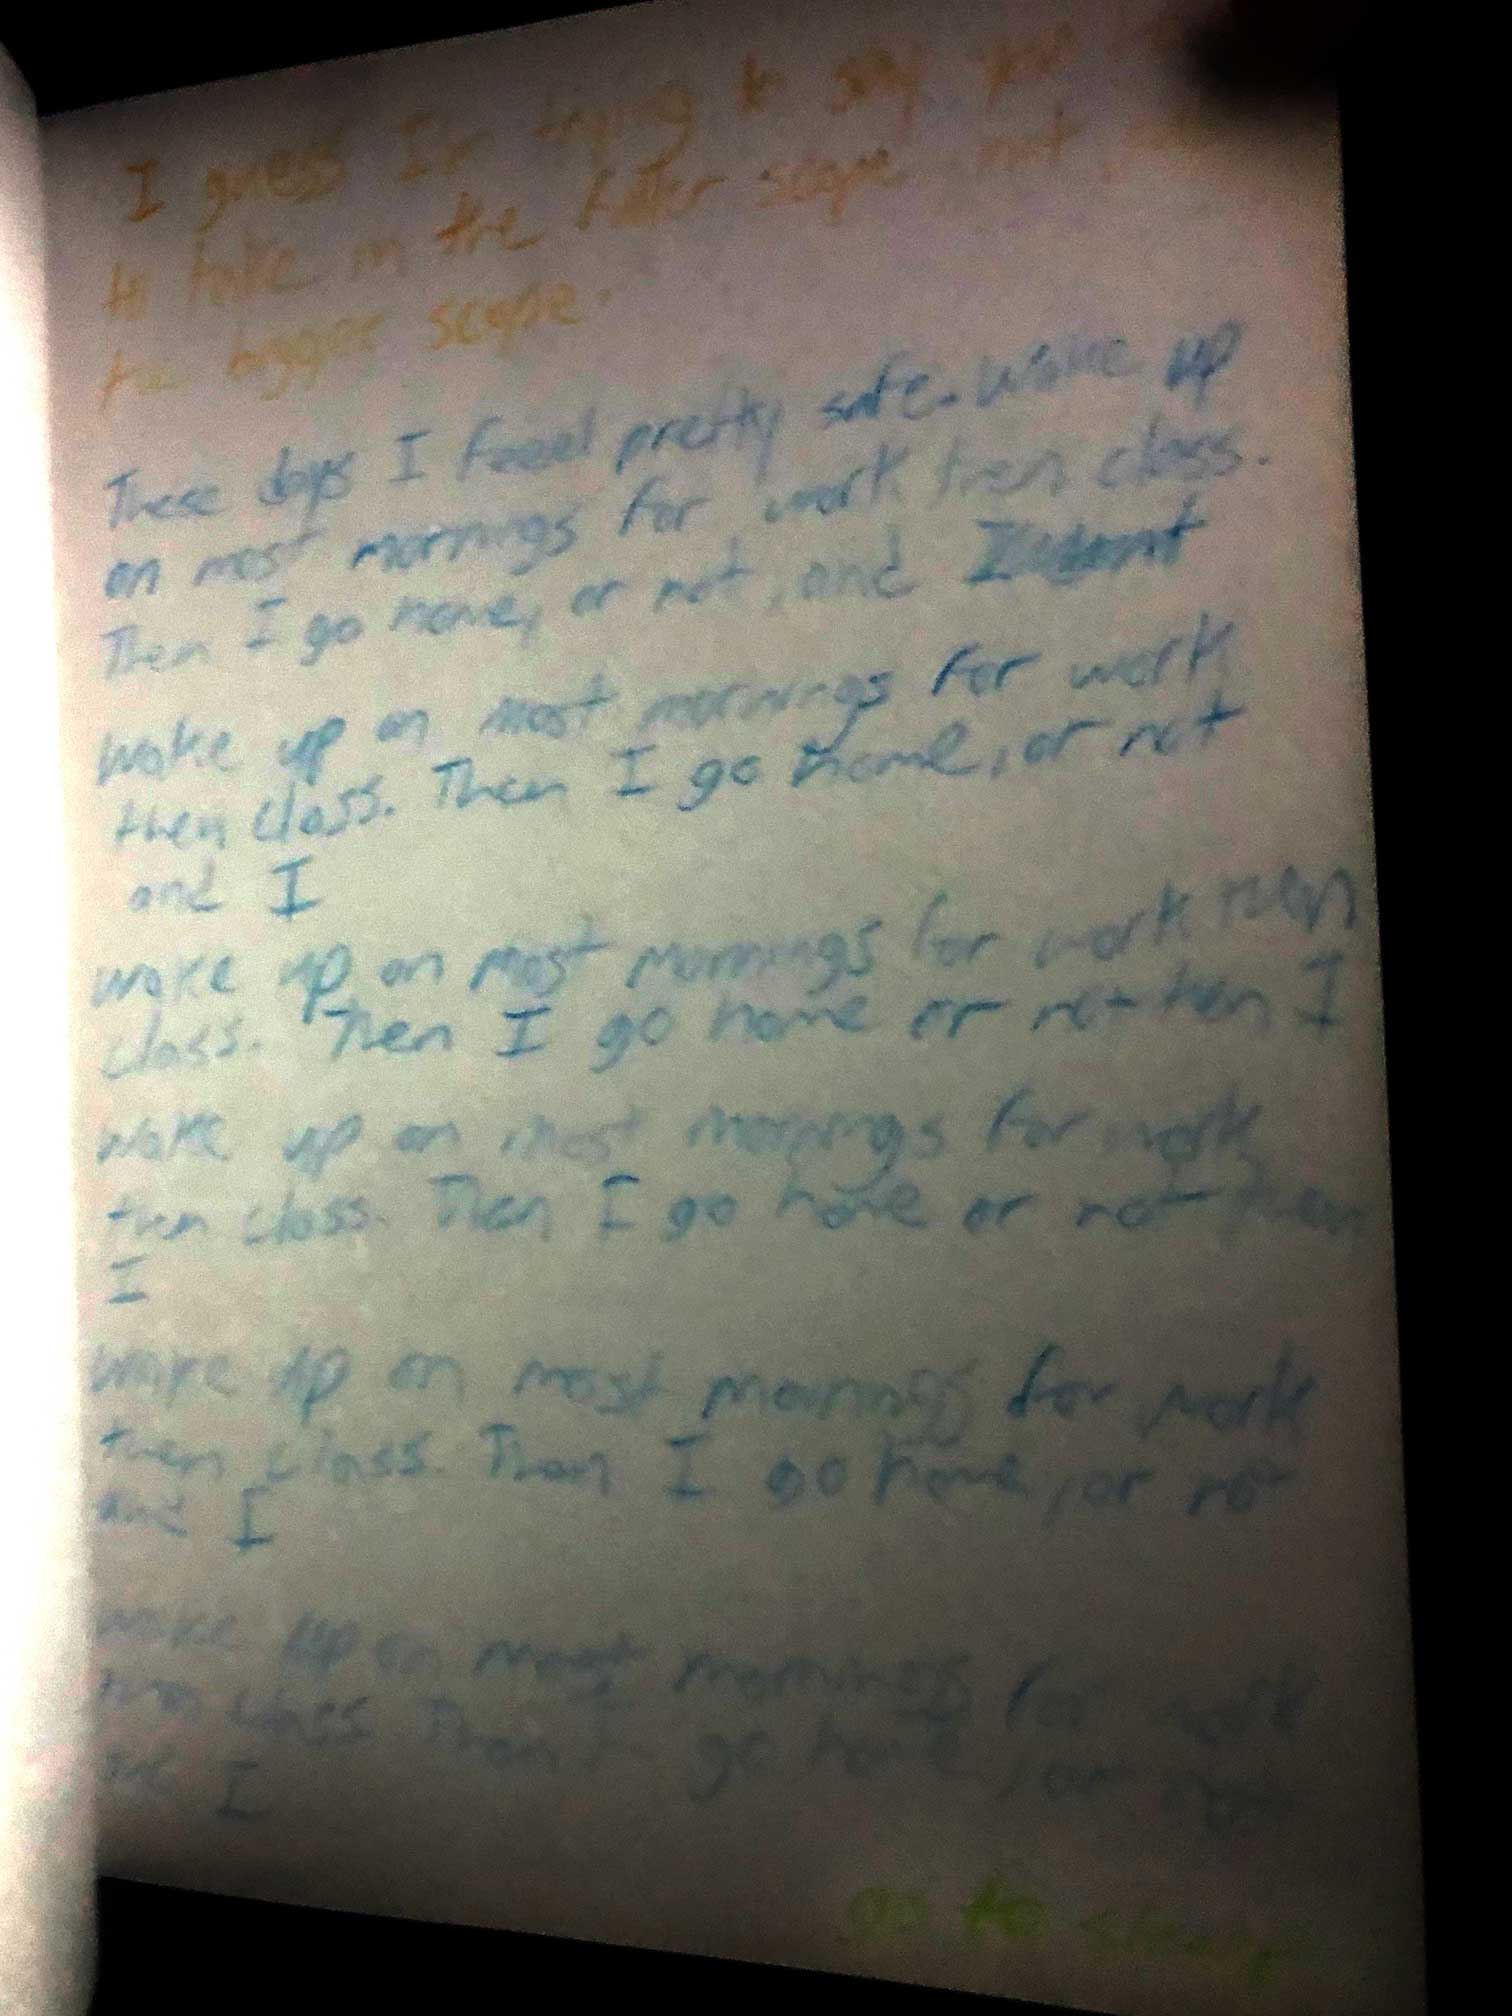 I guess I'm trying to say you
to take in the scope not
the bigger scope.
These days I feeel pretty safe. Wake up
on most mornings for work then class.
Then I go home, or not, and I
Wake up on most mornings for work
then class. Then I go home, or not
and I
wake up on most mornings for work then
class. Then I go home or not then I
Wake up on most mornings for work
then class. Then I go home or not then
I
Wake up on most mornings for work
then class. Then I go home, or not
and I
wake up on most mornings for work
then class. Then I go home, or not
and I
go to sleep